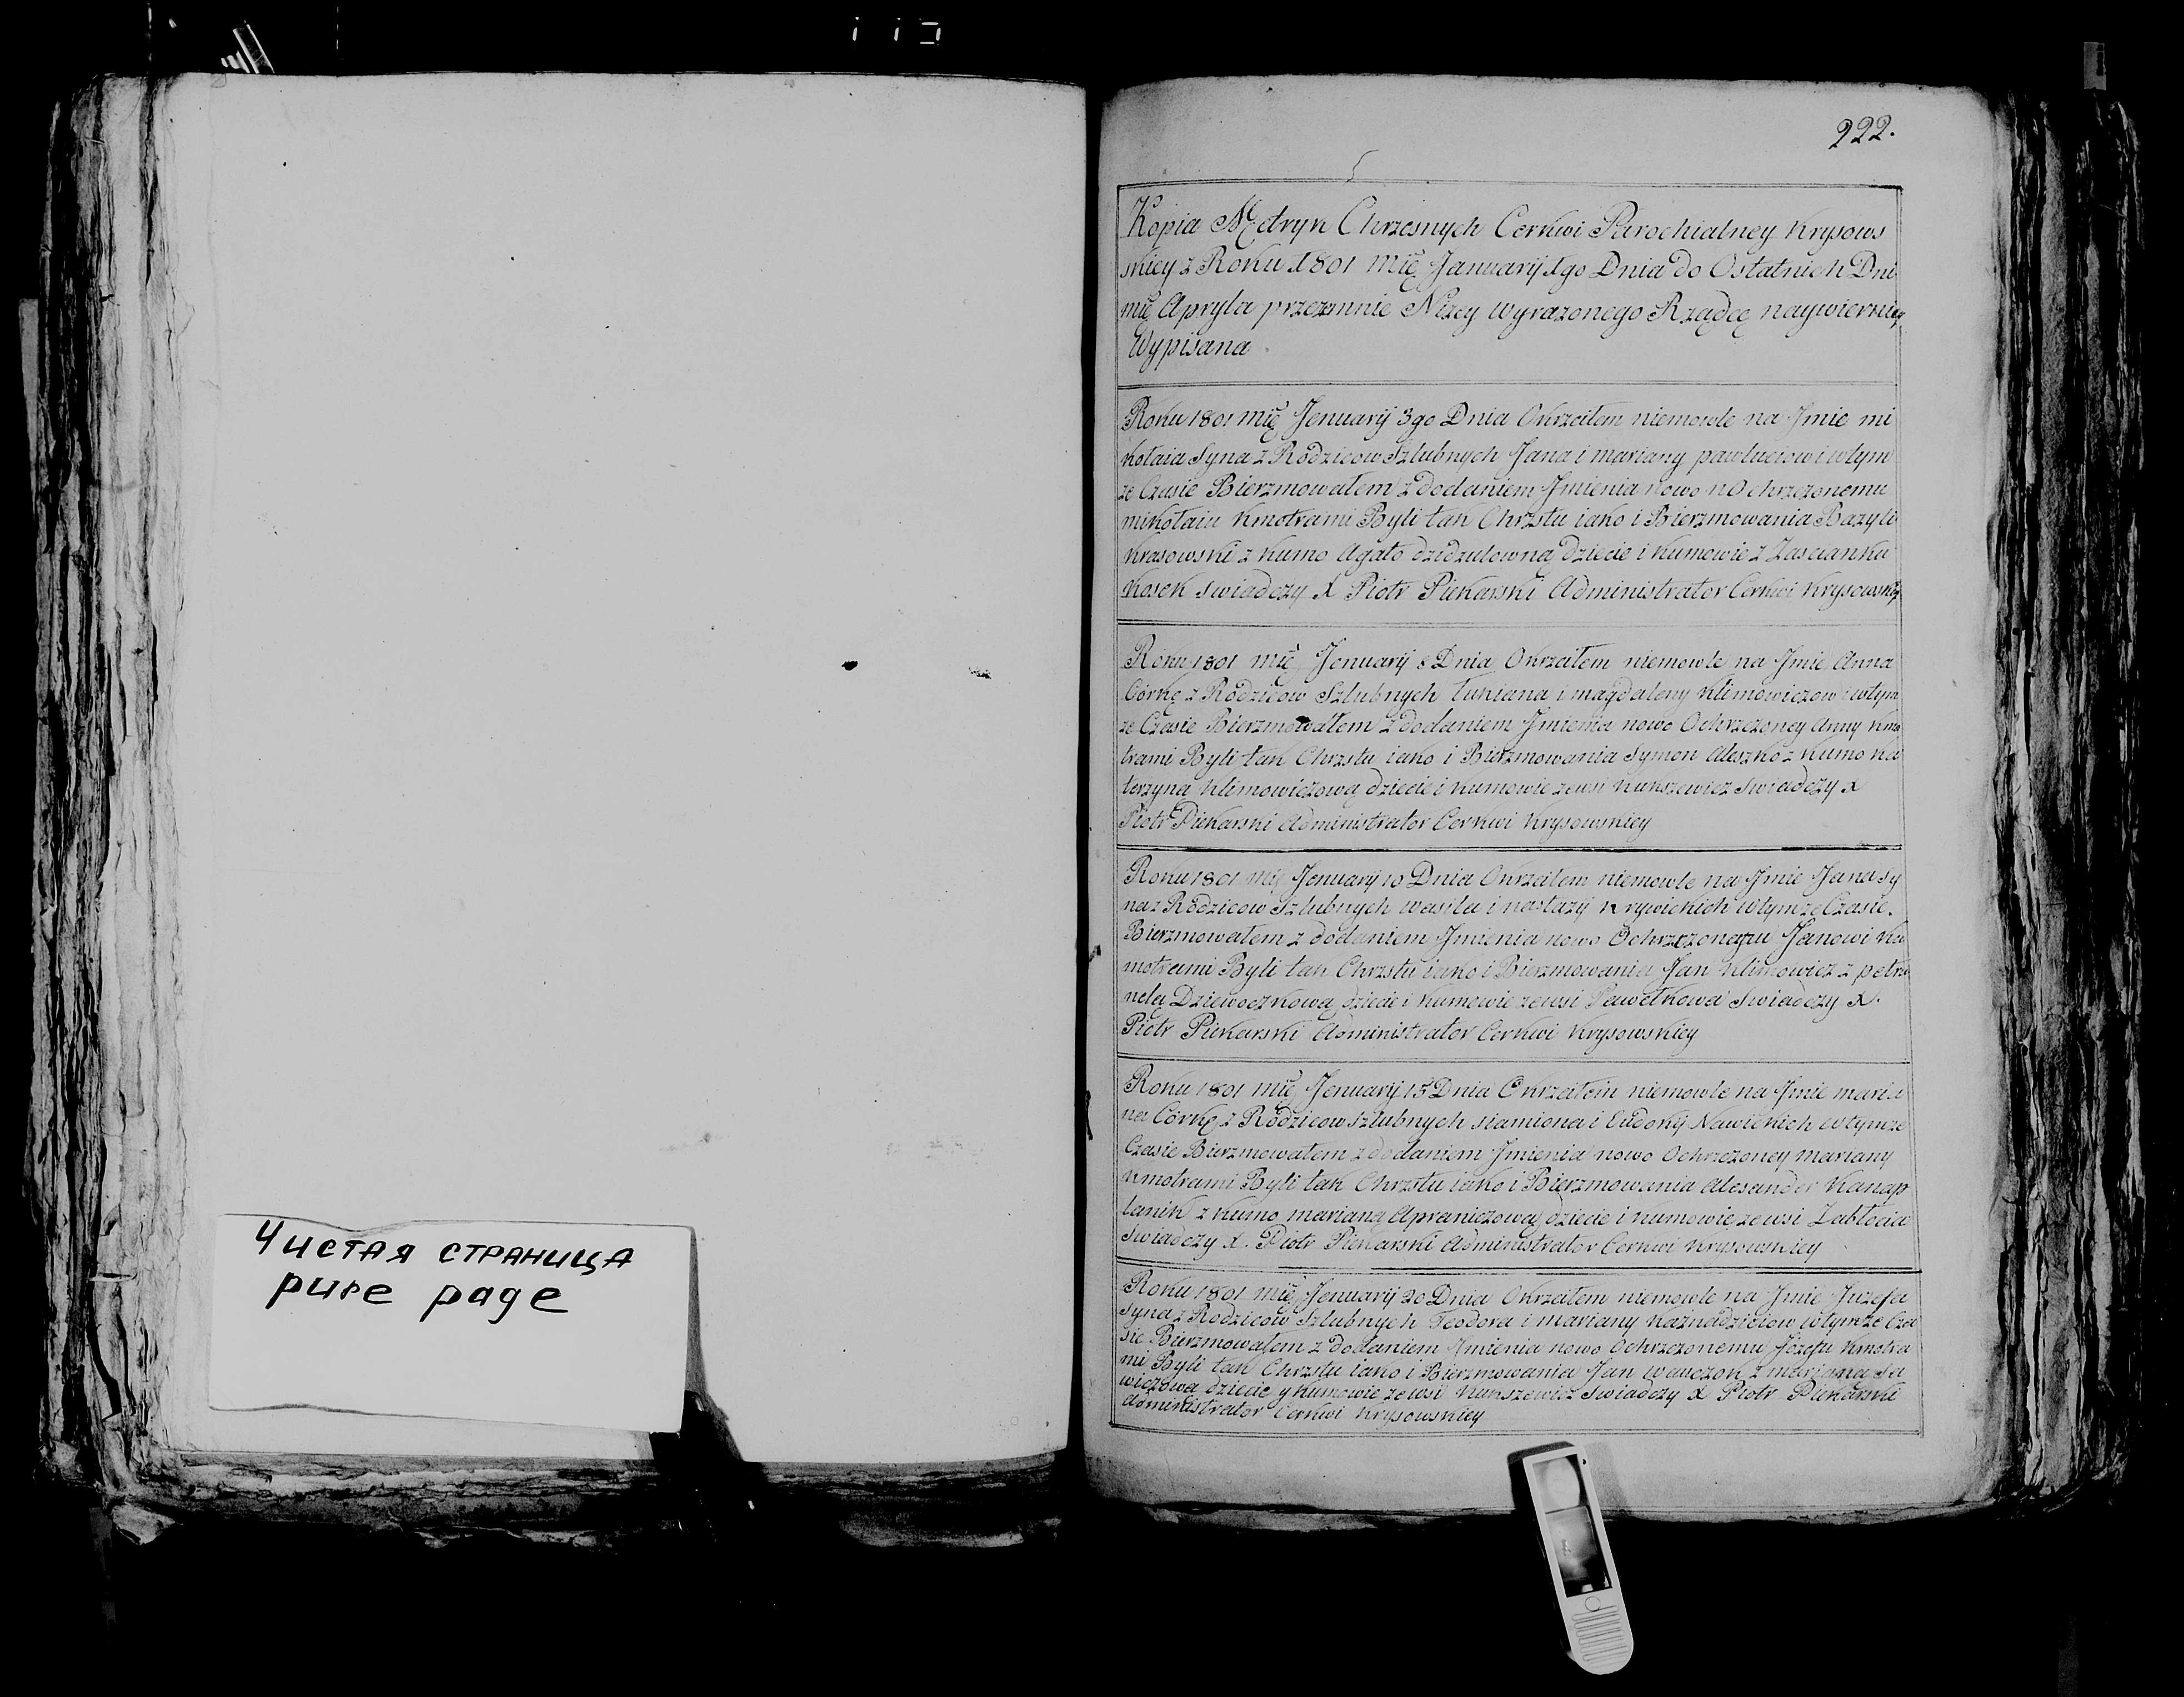 222.
Kopia Metryk Chrzesnych Cerkwi Parochialney Krysows
skiey z Roku 1801 mię Januarij 1go Dnia do Ostatnich Dni
mię Apryla przezmnie Nizey wyrazonego Rządcę naywierniey
Wypisana
Roku 1801 mię Jenuarij 3go Dnia Okrzciłem niemowle na Jmie mi
kołaia Syna z Rodzicow Szlubnych Jana i mariany pawluciow i wtym
ze Czasie Bierzmowałem z dodaniem Jmienia nowo nOchrzczonemu
mikołaiu kmotrami Byli tak Chrzstu iako i Bierzmowania Bazyli
Krasowski z kumo Agato dzidzulowną dziecie i kumowie z Zascianku
Kosek swiadczy X Piotr Piekarski Administrator Cerkwi Krysowskiey
Roku 1801 mię Jenuarij 8 Dnia Okrzciłem niemowle na Jmie Anna
Córkę z Rodzicow Szlubnych Łukiana i magdaleny Klimowiczow i wtym
ze Czasie Bierzmowałem z dodaniem Jmienia nowo Ochrzczoney Anny kmo
trami Byli tak Chrzstu iako i Bierzmowania Symon Aleszko z kumo ka
terzyną Klimowiczową dziecie i kumowie zewsi Kunszewicz Swiadczy X
Piotr Piekarski Administrator Cerkwi Krysowskiey
Roku 1801 mię Jenuarij 10 Dnia Okrzciłem niemowle na Jmie Jana sy
na z Rodzicow Szlubnych wasila i nastazij Krywickich wtymze Czasie.
Bierzmowałem z dodaniem Jmienia nowo Ochrzczonemu Janowi Ka
motrami Byli tak Chrzstu iako i Bierzmowania Jan Klimowicz z petro
nelą Dziewoczkową dziecie i kumowie zewsi Pawełkowa Swiadczy X.
Piotr Piekarski Administrator Cerkwi Krysowskiey
Roku 1801 mię Jenuarij 13 Dnia Okrzciłem niemowle na Jmie maria
na Córkę z Rodzicow szlubnych siamiona i Eudokij Nawickich wtymze
Czasie Bierzmowałem z dodaniem Jmienia nowo Ochrzczoney mariany
kmotrami Byli tak Chrzstu iako i Bierzmowania Alesander Kanap
lanik z kumo marianą Apraniczową dziecie i kumowie zewsi Zabłocia
Swiadczy X. Piotr Piekarski Administrator Cerkwi Krysowskiey
Roku 1801 mię Jenuarij 20 Dnia Okrzciłem niemowle na Jmie Juzefa
syna z Rodzicow Szlubnych Teodora i mariany Kaznadzieiow wtymze Cza
sie Bierzmowałem z dodaniem Jmienia nowo Ochrzczonemu Józefu Kmotra
mi Byli tak Chrzstu iako i Bierzmowania Jan wauczok z marianą Sa
wiczową dziecie y kumowie zewsi Kunszewicz Swiadczy X Piotr Piekarski
Administrator Cerkwi Krysowskiey
Чистая страница
pure page